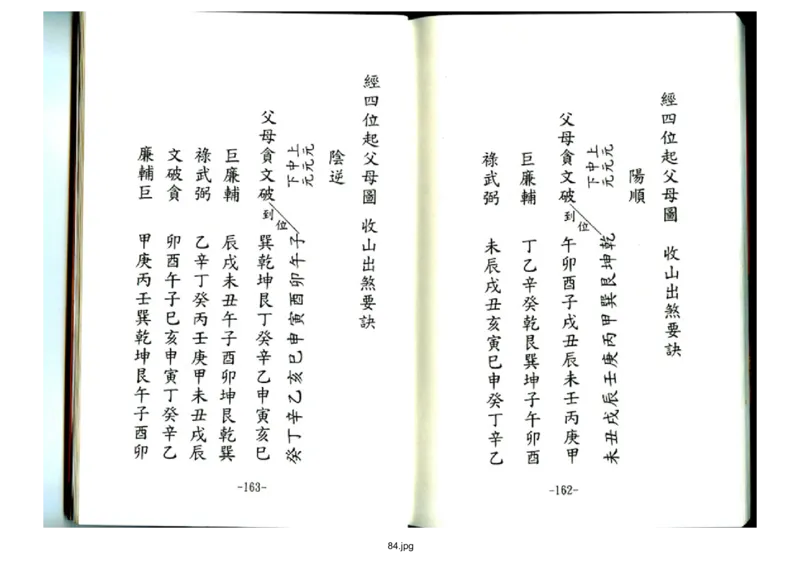 經四位起父母圖 收山出煞要訣
陽順
上元
中元
下元
乾坤艮巽甲丙庚壬辰戌丑未
父母貪文破 到位 午卯酉子戌丑辰未壬丙庚甲
巨廉輔 丁乙辛癸乾艮巽坤子午卯酉
祿武弼 未辰戌丑亥寅巳申癸丁辛乙
-162-
經四位起父母圖 收山出煞要訣
陰逆
上元
中元
下元
子午卯酉寅申巳亥乙辛丁癸
父母貪文破 到位 巽乾坤艮丁癸辛乙申寅亥巳
巨廉輔 辰戌未丑午子酉卯坤艮乾巽
祿武弼 乙辛丁癸丙壬庚甲未丑戌辰
文破貪 卯酉午子巳亥申寅丁癸辛乙
廉輔巨 甲庚丙壬巽乾坤艮午子酉卯
-163-
84.jpg